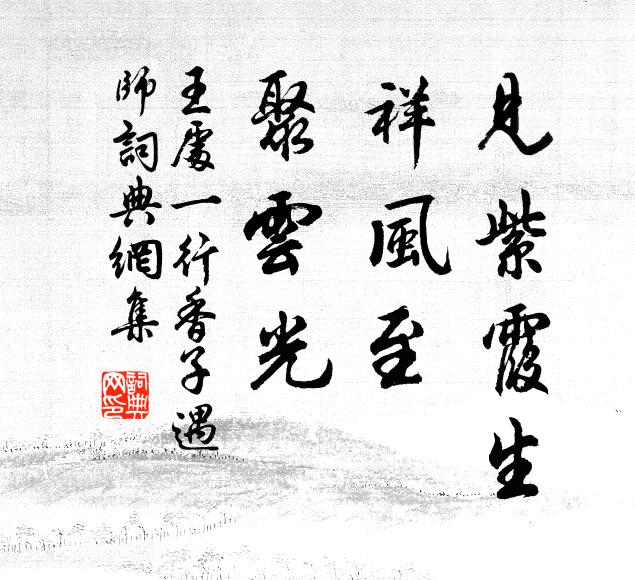 見紫霞生
祥風至
聚雲光
王處一行香子遇
師詞典網集
詞典
网印